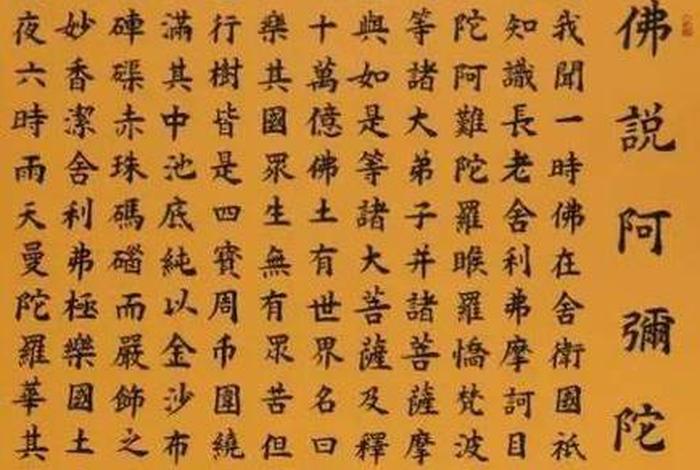 佛説阿彌陀
我聞一時佛在舍衛國祇
知識長老舍利弗摩訶目
陀阿難陀羅睺羅憍梵波
等諸大弟子并諸菩薩摩
與如是等諸大菩薩及釋
十萬億佛土有世界名曰
樂其國眾生無有眾苦但
行樹皆是四寶周帀圍繞
滿其中池底純以金沙布
硨磲赤珠碼碯而嚴飾之
妙香潔舍利弗極樂國土
夜六時雨天曼陀羅華其